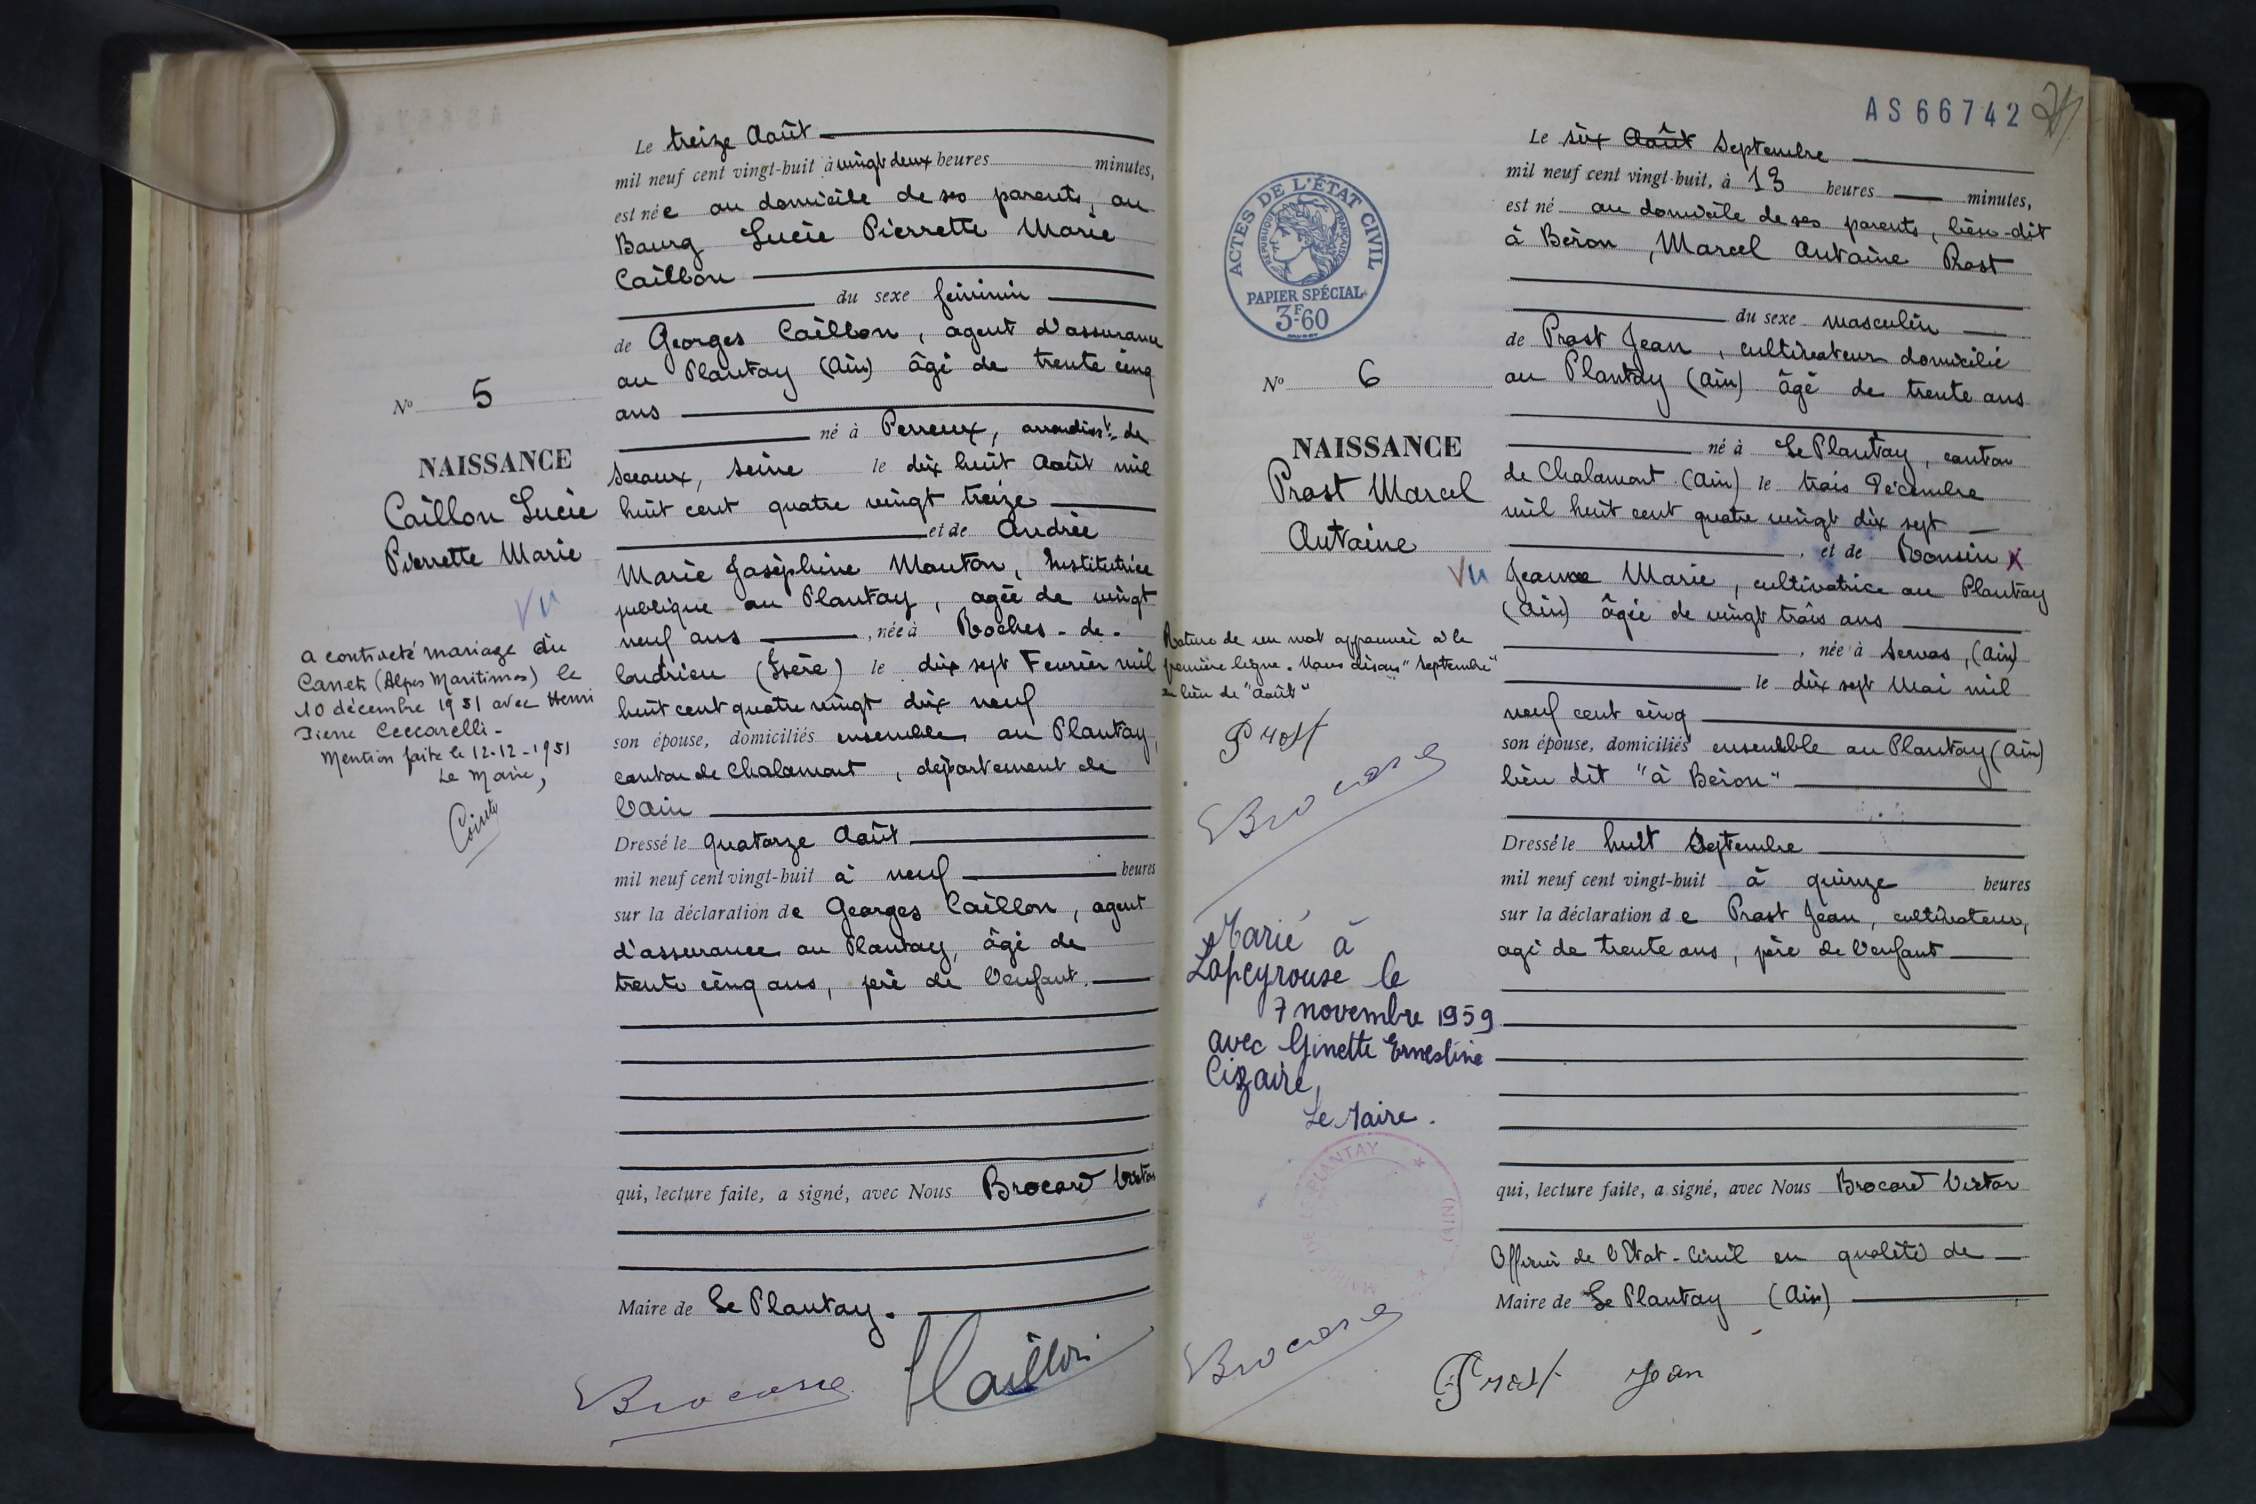 Le treize Août
mil neuf cent vingt-huit à vingt deux heures minutes,
est née au domicile de ses parents, au
Bourg Lucie Pierrette Marie
Caillon
du sexe féminin
de Georges Caillon, agent d'assurance
au Plantay (Ain) âgé de trente cinq
ans
né à Perreux, arrondisst. de
Sceaux, Seine le dix huit Août mil
huit cent quatre vingt treize
et de Andrée
Marie Joséphine Mouton, Institutrice
publique au Plantay, agée de vingt
neuf ans, née à Roches-de-
Condrieu (Isère) le dix sept Fevrier mil
huit cent quatre vingt dix neuf
son épouse, domiciliés ensemble au Plantay,
canton de Chalamont, département de
l'Ain
Dressé le quatorze Août
mil neuf cent vingt-huit à neuf heures
sur la déclaration de Georges Caillon, agent
d'assurance au Plantay, âgé de
trente cinq ans, père de l'enfant.
qui, lecture faite, a signé, avec Nous Brocard Victor
Maire de Le Plantay.
Brocard Caillon
No 5
NAISSANCE
Caillon Lucie
Pierrette Marie
Vu
a contracté mariage au
Cannet (Alpes Maritimes) le
10 décembre 1951 avec Henri
Pierre Ceccarelli-
Mention faite le 12-12-1951
Le Maire,
AS66742
ACTES DE L'ÉTAT CIVIL
RÉPUBLIQUE FRANÇAISE
PAPIER SPÉCIAL
3F60
No 6
NAISSANCE
Prost Marcel
Antoine
Vu
Rature de un mot approuvée à la
première ligne. Nous disons "Septembre"
au lieu de "Août"
Prost
Brocard
Marié à
Lapeyrouse le
7 novembre 1959
avec Ginette Ernestine
Cizaire,
Le Maire.
PLANTAY
(AIN)
Brocard
Le six Août Septembre
mil neuf cent vingt-huit, à 13 heures minutes,
est né au domicile de ses parents, lieu-dit
à Beron, Marcel Antoine Prost
du sexe masculin
de Prost Jean, cultivateur domicilié
au Plantay (Ain) âgé de trente ans
né à Le Plantay, canton
de Chalamont (Ain) le trois Décembre
mil huit cent quatre vingt dix sept
, et de Ronsin x
Jeanne Marie, cultivatrice au Plantay
(Ain) âgée de vingt trois ans
, née à Servas, (Ain)
le dix sept Mai mil
neuf cent cinq
son épouse, domiciliés ensemble au Plantay (Ain)
lieu dit "à Beron"
Dressé le huit Septembre
mil neuf cent vingt-huit à quinze heures
sur la déclaration de Prost Jean, cultivateur,
agé de trente ans, père de l'enfant
qui, lecture faite, a signé, avec Nous Brocard Victor
Officier de l'Etat-Civil en qualité de
Maire de Le Plantay (Ain)
Prost Jean